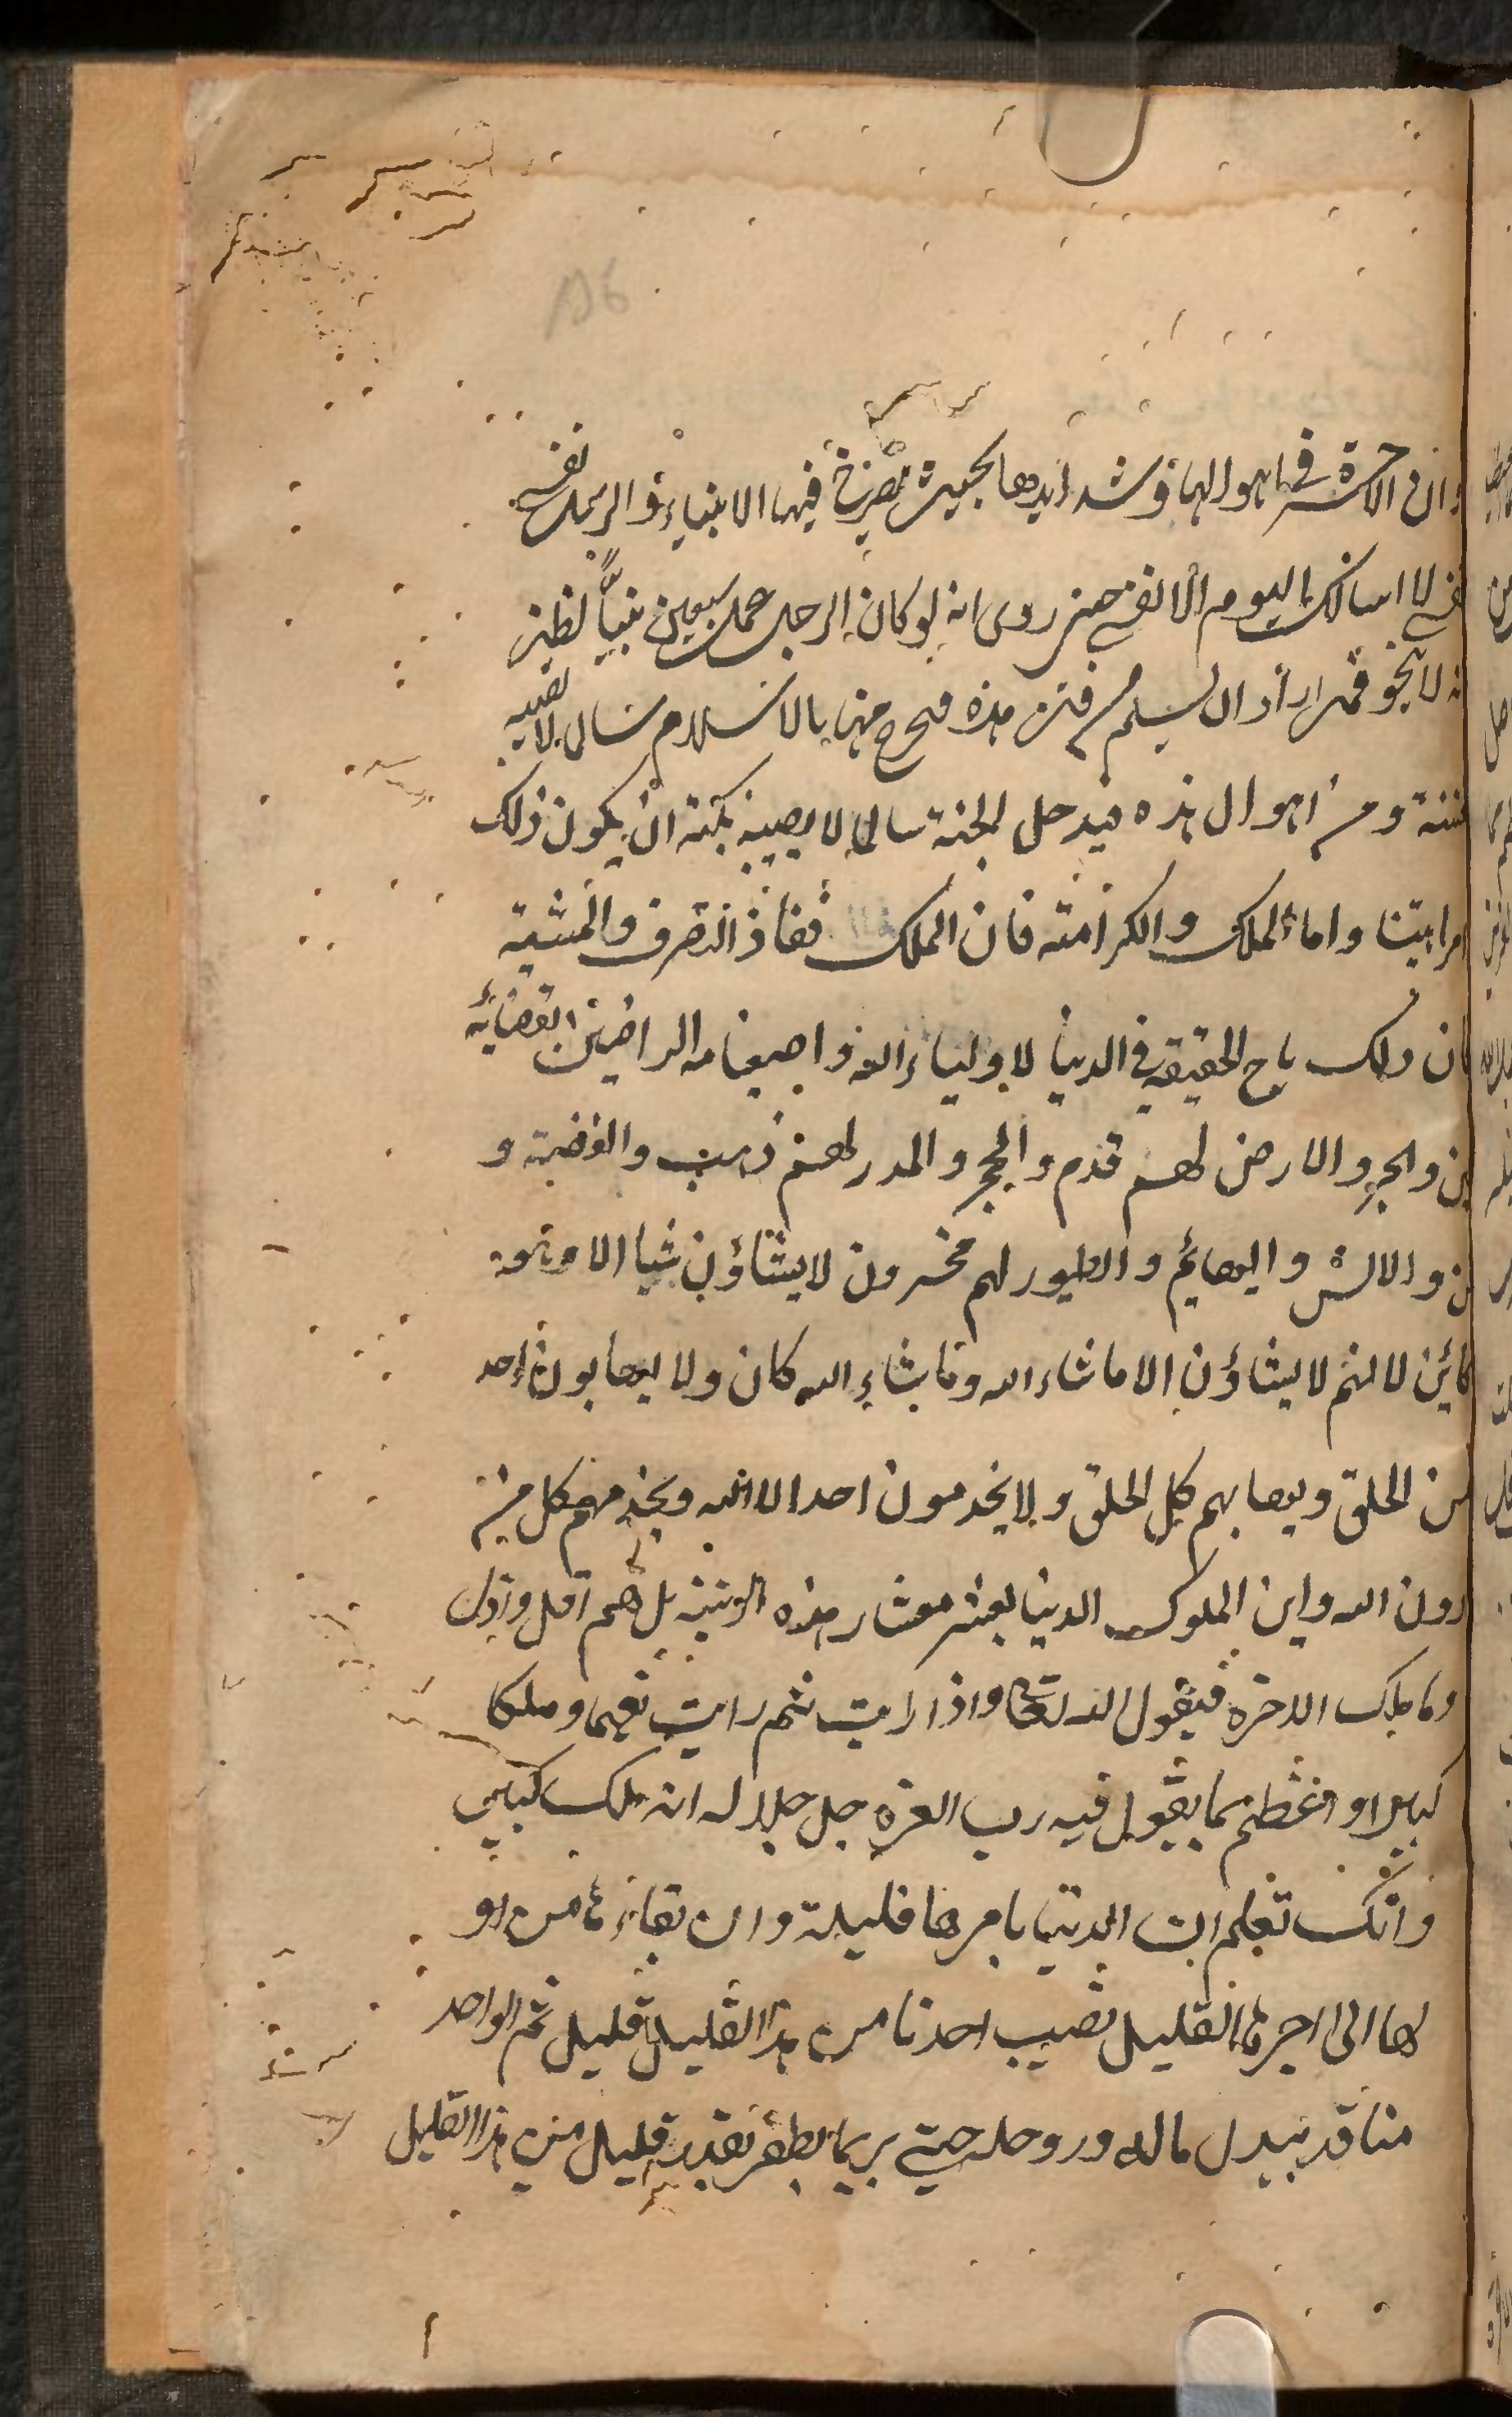 وان الاخرة في اهوالها وشدايدها بحيث يصرخ فيها الانبياء والرسل نفسي
نفسي لا اسالك اليوم الا نفسي حتى روى انه لو كان الرجل عمل سبعين نبيا لظن
انه لا ينجو فمن اراد ان يسلم من فتن هذه فيخرج منها بالاسلام سالما لا تصيبه
فتنة ومن اهوال هذه فيدخل الجنة سالما لا يصيبه نكبة ان يكون ذلك
امرا هينا واما الملك والكرامة فان الملك نفاذ التصرف والمشية
وان ذلك بالحقيقة في الدنيا لاولياء الله واصفيائه الراضين بقضائه
والبحر والارض لهم قدم والحجر والمدر لهم ذهب والفضة و
الجن والانس والبهايم والطيور لهم مسخرون لا يشاؤن شيا الا وهو
كائن لا انهم لا يشاؤن الا ما شاء الله وما يشاء الله كان ولا يهابون احد
من الخلق ويهابهم كل الخلق ولا يخدمون احدا الا الله ويخدمهم كل من
دون الله واين الملوك الدنيا بعشر معشار هذه الرتبة بل هم اقل واذل
وما ملك الاخرة فيقول الله تعالى واذا رايت ثم رايت نعيما وملكا
كبيرا واعظم بما يقول فيه رب العزة جل جلاله انه ملك كبير
وانك تعلم ان الدنيا بامرها قليلة وان بقاءها من او
لها الى اخرها القليل نصيب احدنا من هذا القليل قليل ثم الواحد
منا قد يبذل ماله وروحه حتى ربما يظفر بقدر قليل من هذا القليل